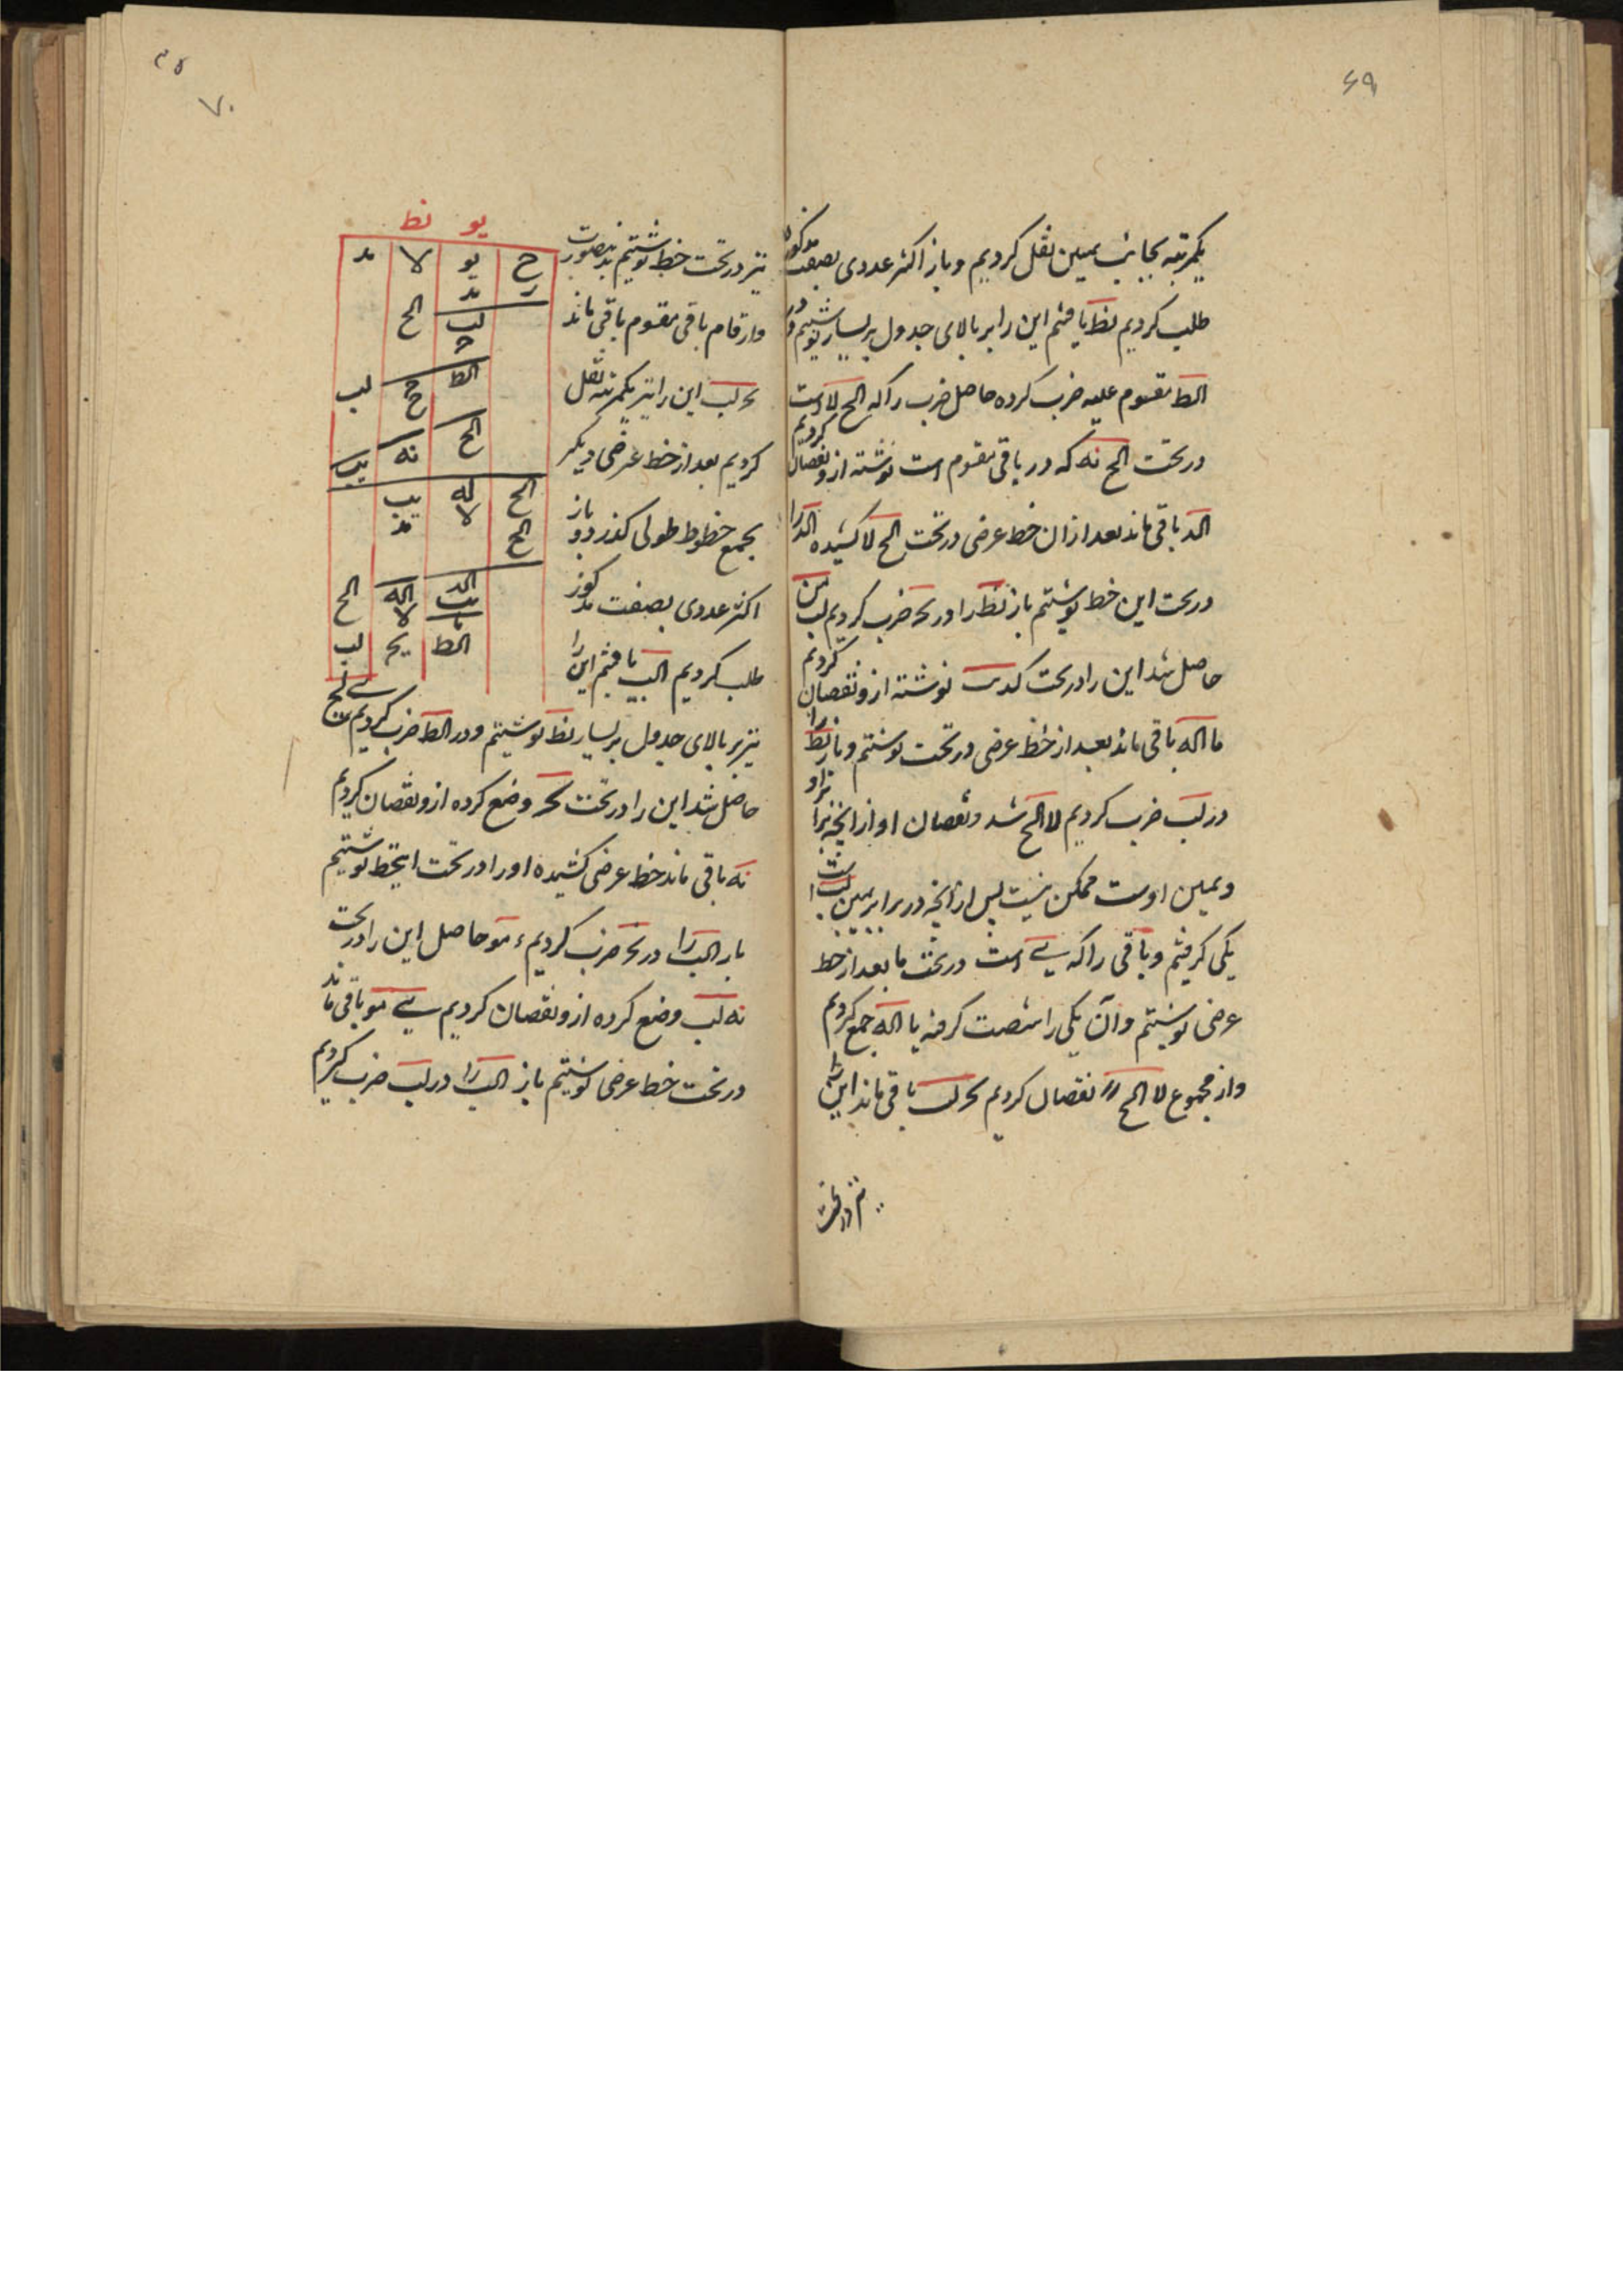 ۶۹
یکمرتبه بجانب یمین نقل کردیم و باز اکثر عددی بصفت مذکوره
طلب کردیم نط یافتیم این را بر بالای جدول بر یسار یو نوشتیم و در
الط مقسوم علیه ضرب کرده حاصل ضرب را که الح لا است
در تحت الح نه که در باقی مقسوم است نوشته ازو نقصان کردیم
الد باقی ماند بعد از ان خط عرضی در تحت الح لا کشیده الد را
در تحت این خط نوشتیم باز نط را در نحه ضرب کردیم لب
حاصل شد این را در تحت نوشته ازو نقصان کردیم
ما اله باقی ماند بعد از خط عرضی در تحت نوشتیم و باز نط را
در لب ضرب کردیم لا الح شد و نقصان او از انچه برابر او
و یمین اوست ممکن نیست پس از انچه در برابر یمین
یکی کرفتیم و باقی را که است در تحت ما بعد از خط
عرضی نوشتیم و آن یکی را شصت کرفته با اله جمع کردیم
و از مجموع لا الح را نقصان کردیم باقی ماند این را
نیز در تحت
۷۰
یو نط
ح یو لا مد
لب الح
الط ح لب
الح نه یب
الح له یب
الح لا مد
الد اله الح
یب لا
الط یح لب
نیز در تحت خط نوشتیم بدینصورت
و ارقام باقی مقسوم باقی ماند
لب این را نیز یکمرتبه نقل
کردیم بعد از خط عرضی دیکر
بجمع خطوط طولی کذرد و باز
اکثر عددی بصفت مذکور
طلب کردیم الب یافتیم این را
نیز بر بالای جدول بر یسار نط نوشتیم و در الط ضرب کردیم
حاصل شد این را در تحت وضع کرده ازو نقصان کردیم
نه باقی ماند خط عرضی کشیده او را در تحت اینخط نوشتیم
باز الب را در نحه ضرب کردیم مو حاصل این را در تحت
نه لب وضع کرده ازو نقصان کردیم مو باقی ماند
در تحت خط عرضی نوشتیم باز الب را در لب ضرب کردیم